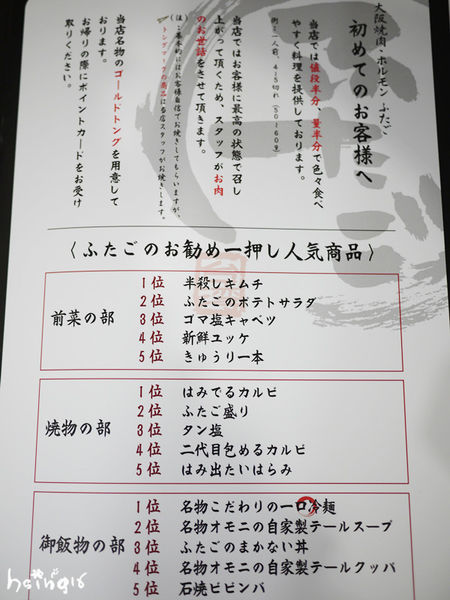 大阪焼肉・ホルモン ふたご
初めてのお客様へ
当店では値段半分、量半分で色々食べ
やすく料理を提供しております。
当店ではお客様に最高の状態で召し
上がって頂くため、スタッフがお肉
のお世話をさせて頂きます。
当店名物のゴールドトングを用意して
おります。
お帰りの際にポイントカードをお受け
取りください。
〈ふたごのお勧め一押し人気商品〉
前菜の部
1位 半殺しキムチ
2位 ふたごのポテトサラダ
3位 ゴマ塩キャベツ
4位 新鮮ユッケ
5位 きゅうり一本
焼物の部
1位 はみでるカルビ
2位 ふたご盛り
3位 タン塩
4位 二代目包めるカルビ
5位 はみ出たいはらみ
御飯物の部
1位 名物こだわりの一口冷麺
2位 名物オモニの自家製テールスープ
3位 ふたごのまかない丼
4位 名物オモニの自家製テールクッパ
5位 石焼ビビンバ